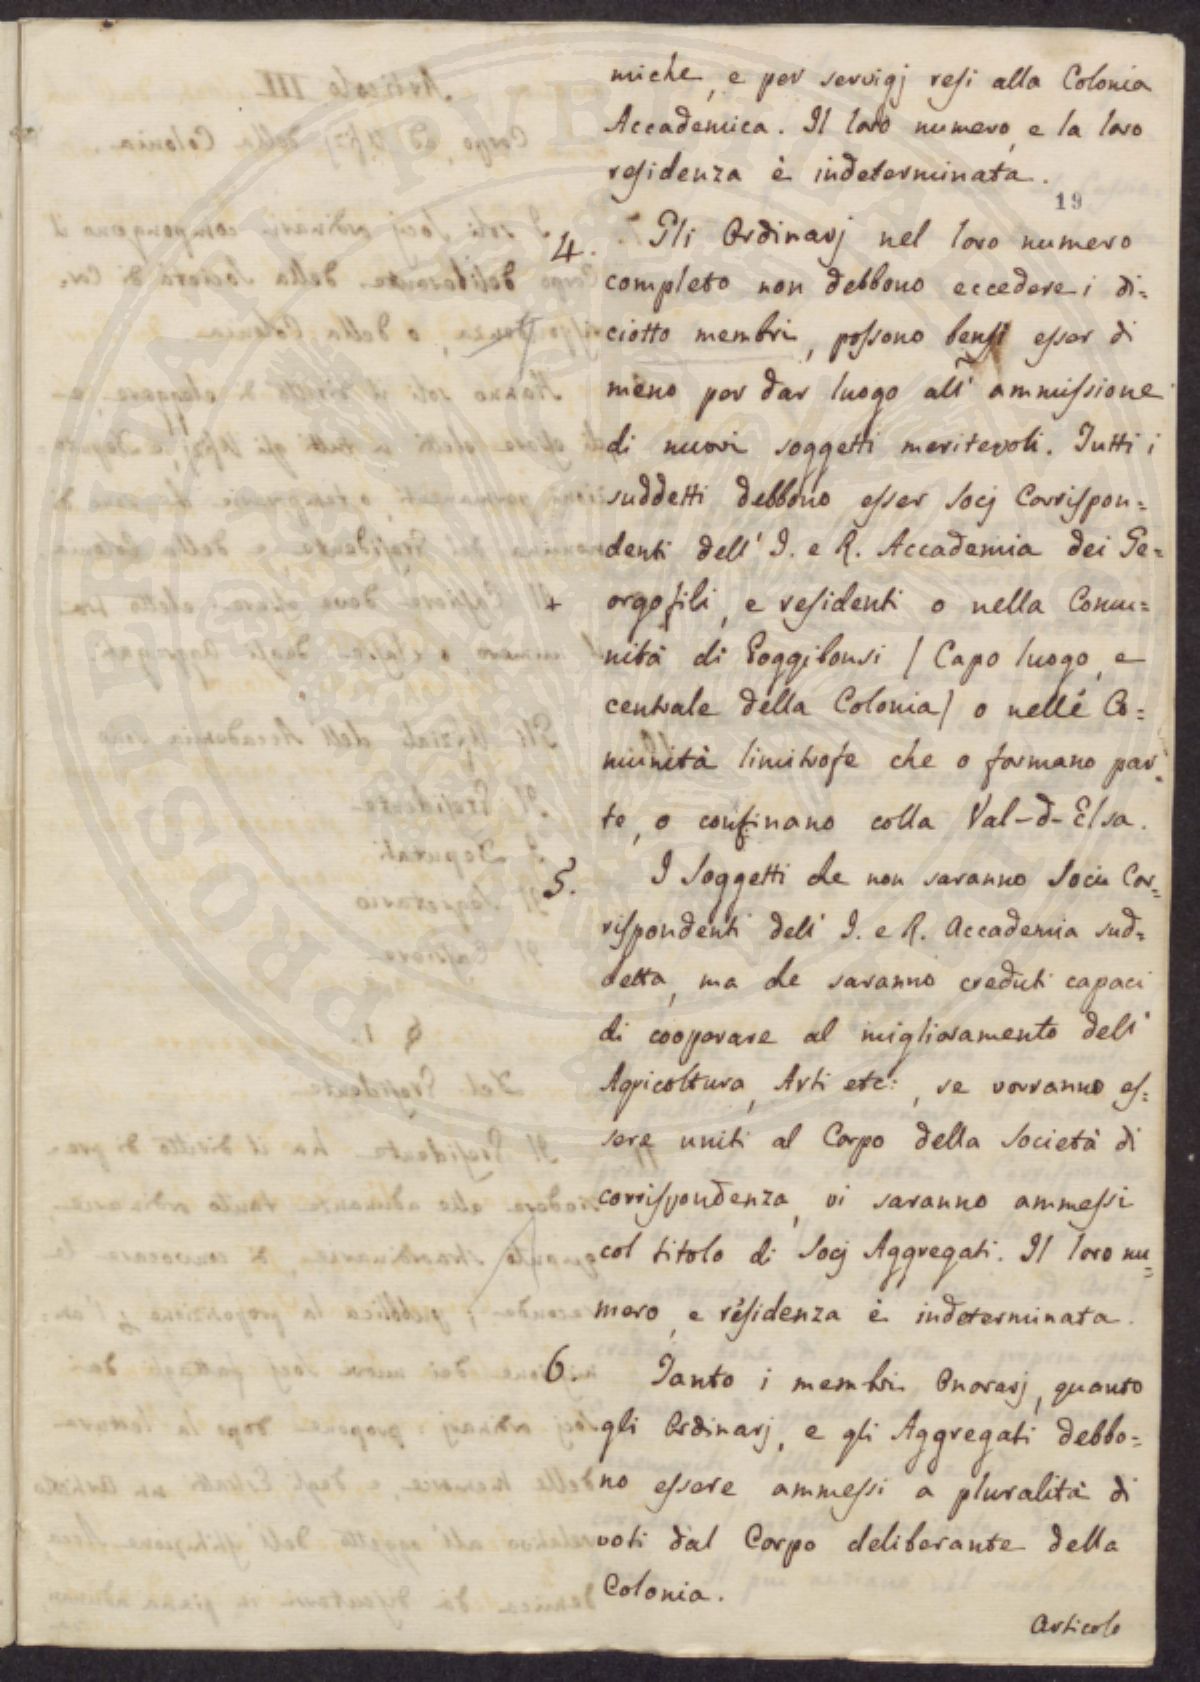 miche, e per servigj resi alla Colonia
Accademica. Il loro numero, e la loro
residenza è indeterminata.
19
4. Gli Ordinarj nel loro numero
completo non debbono eccedere i di=
ciotto membri, possono bensi esser di
meno per dar luogo all' ammissione
di nuovi soggetti meritevoli. Tutti i
suddetti debbono esser Socj Corrispon=
denti dell' I. e R. Accademia dei Ge=
+ orgofili, e residenti o nella Comu=
nità di Poggibonsi / Capo luogo, e
centrale della Colonia / o nelle Co=
munità limitrofe che o formano par=
te, o confinano colla Val-d-Elsa.
5. I Soggetti che non saranno Socii Cor=
rispondenti dell' I. e R. Accademia sud=
detta, ma che saranno creduti capaci
di cooperare al miglioramento dell'
Agricoltura, Arti etc:, se vorranno es=
sere uniti al Corpo della Società di
corrispondenza, vi saranno ammessi
col titolo di Socj Aggregati. Il loro nu=
mero, e residenza è indeterminata.
6. Tanto i membri Onorarj, quanto
gli Ordinarj, e gli Aggregati debbo=
no essere ammessi a pluralità di
voti dal Corpo deliberante della
Colonia.
Articolo